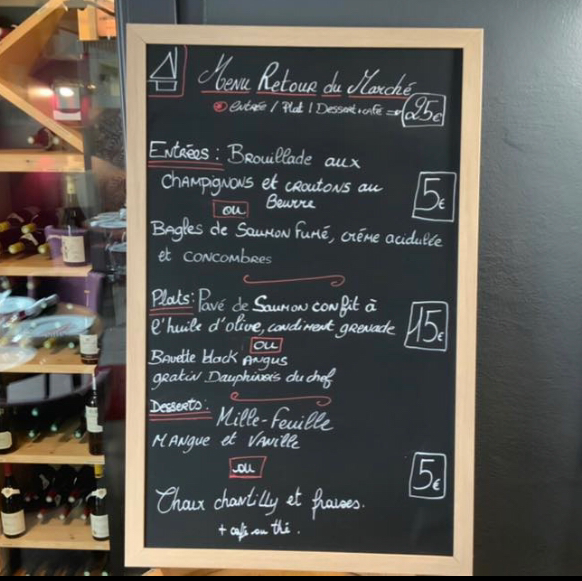 Menu Retour du Marché
Entrée / Plat / Dessert + café = 25€
Entrées : Brouillade aux
champignons et croutons au
ou Beurre
5€
Bagles de Saumon fumé, crème acidulée
et concombres
Plats : Pavé de Saumon confit à
l'huile d'olive, condiment grenade
15€
ou
Bavette black Angus
gratin Dauphinois du chef
Desserts : Mille-feuille
Mangue et Vanille
ou
5€
Choux chantilly et fraises.
+ café ou thé.